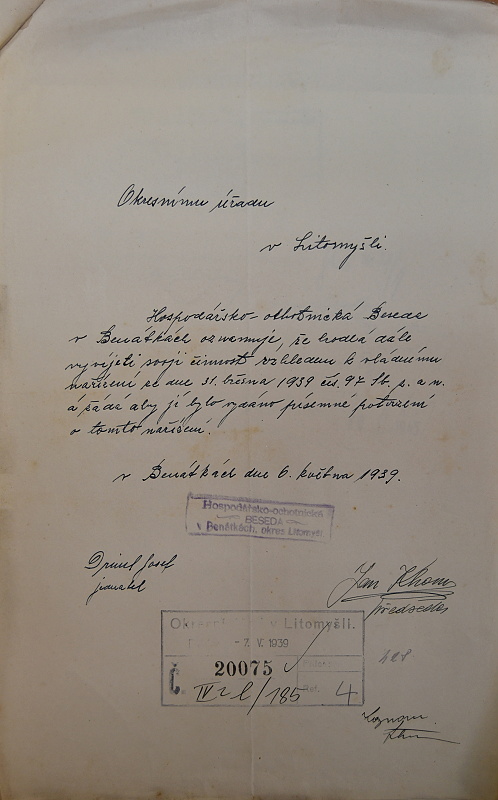 Okresnímu úřadu
v Litomyšli.
Hospodářsko-ochotnická Beseda
v Benátkách oznamuje, že hodlá dále
vyvíjeti svoji činnost vzhledem k vládnímu
nařízení ze dne 31. března 1939 čís. 97 Sb. z. a n.
a žádá aby jí bylo vydáno písemné potvrzení
o tomto nařízení.
v Benátkách dne 6. května 1939.
Hospodářsko-ochotnická
BESEDA
v Benátkách, okres Litomyšl.
Josef
jednatel
Jan
předseda
Okresní v Litomyšli.
- 7. V. 1939
č. 20075
185 4